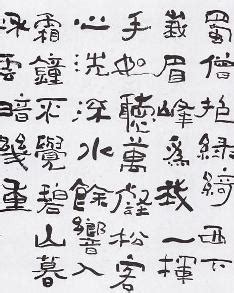 蜀僧抱綠綺西下
峩眉峰為我一揮
手如聽萬壑松客
心洗流水餘響入
霜鐘不覺碧山暮
秋雲暗幾重